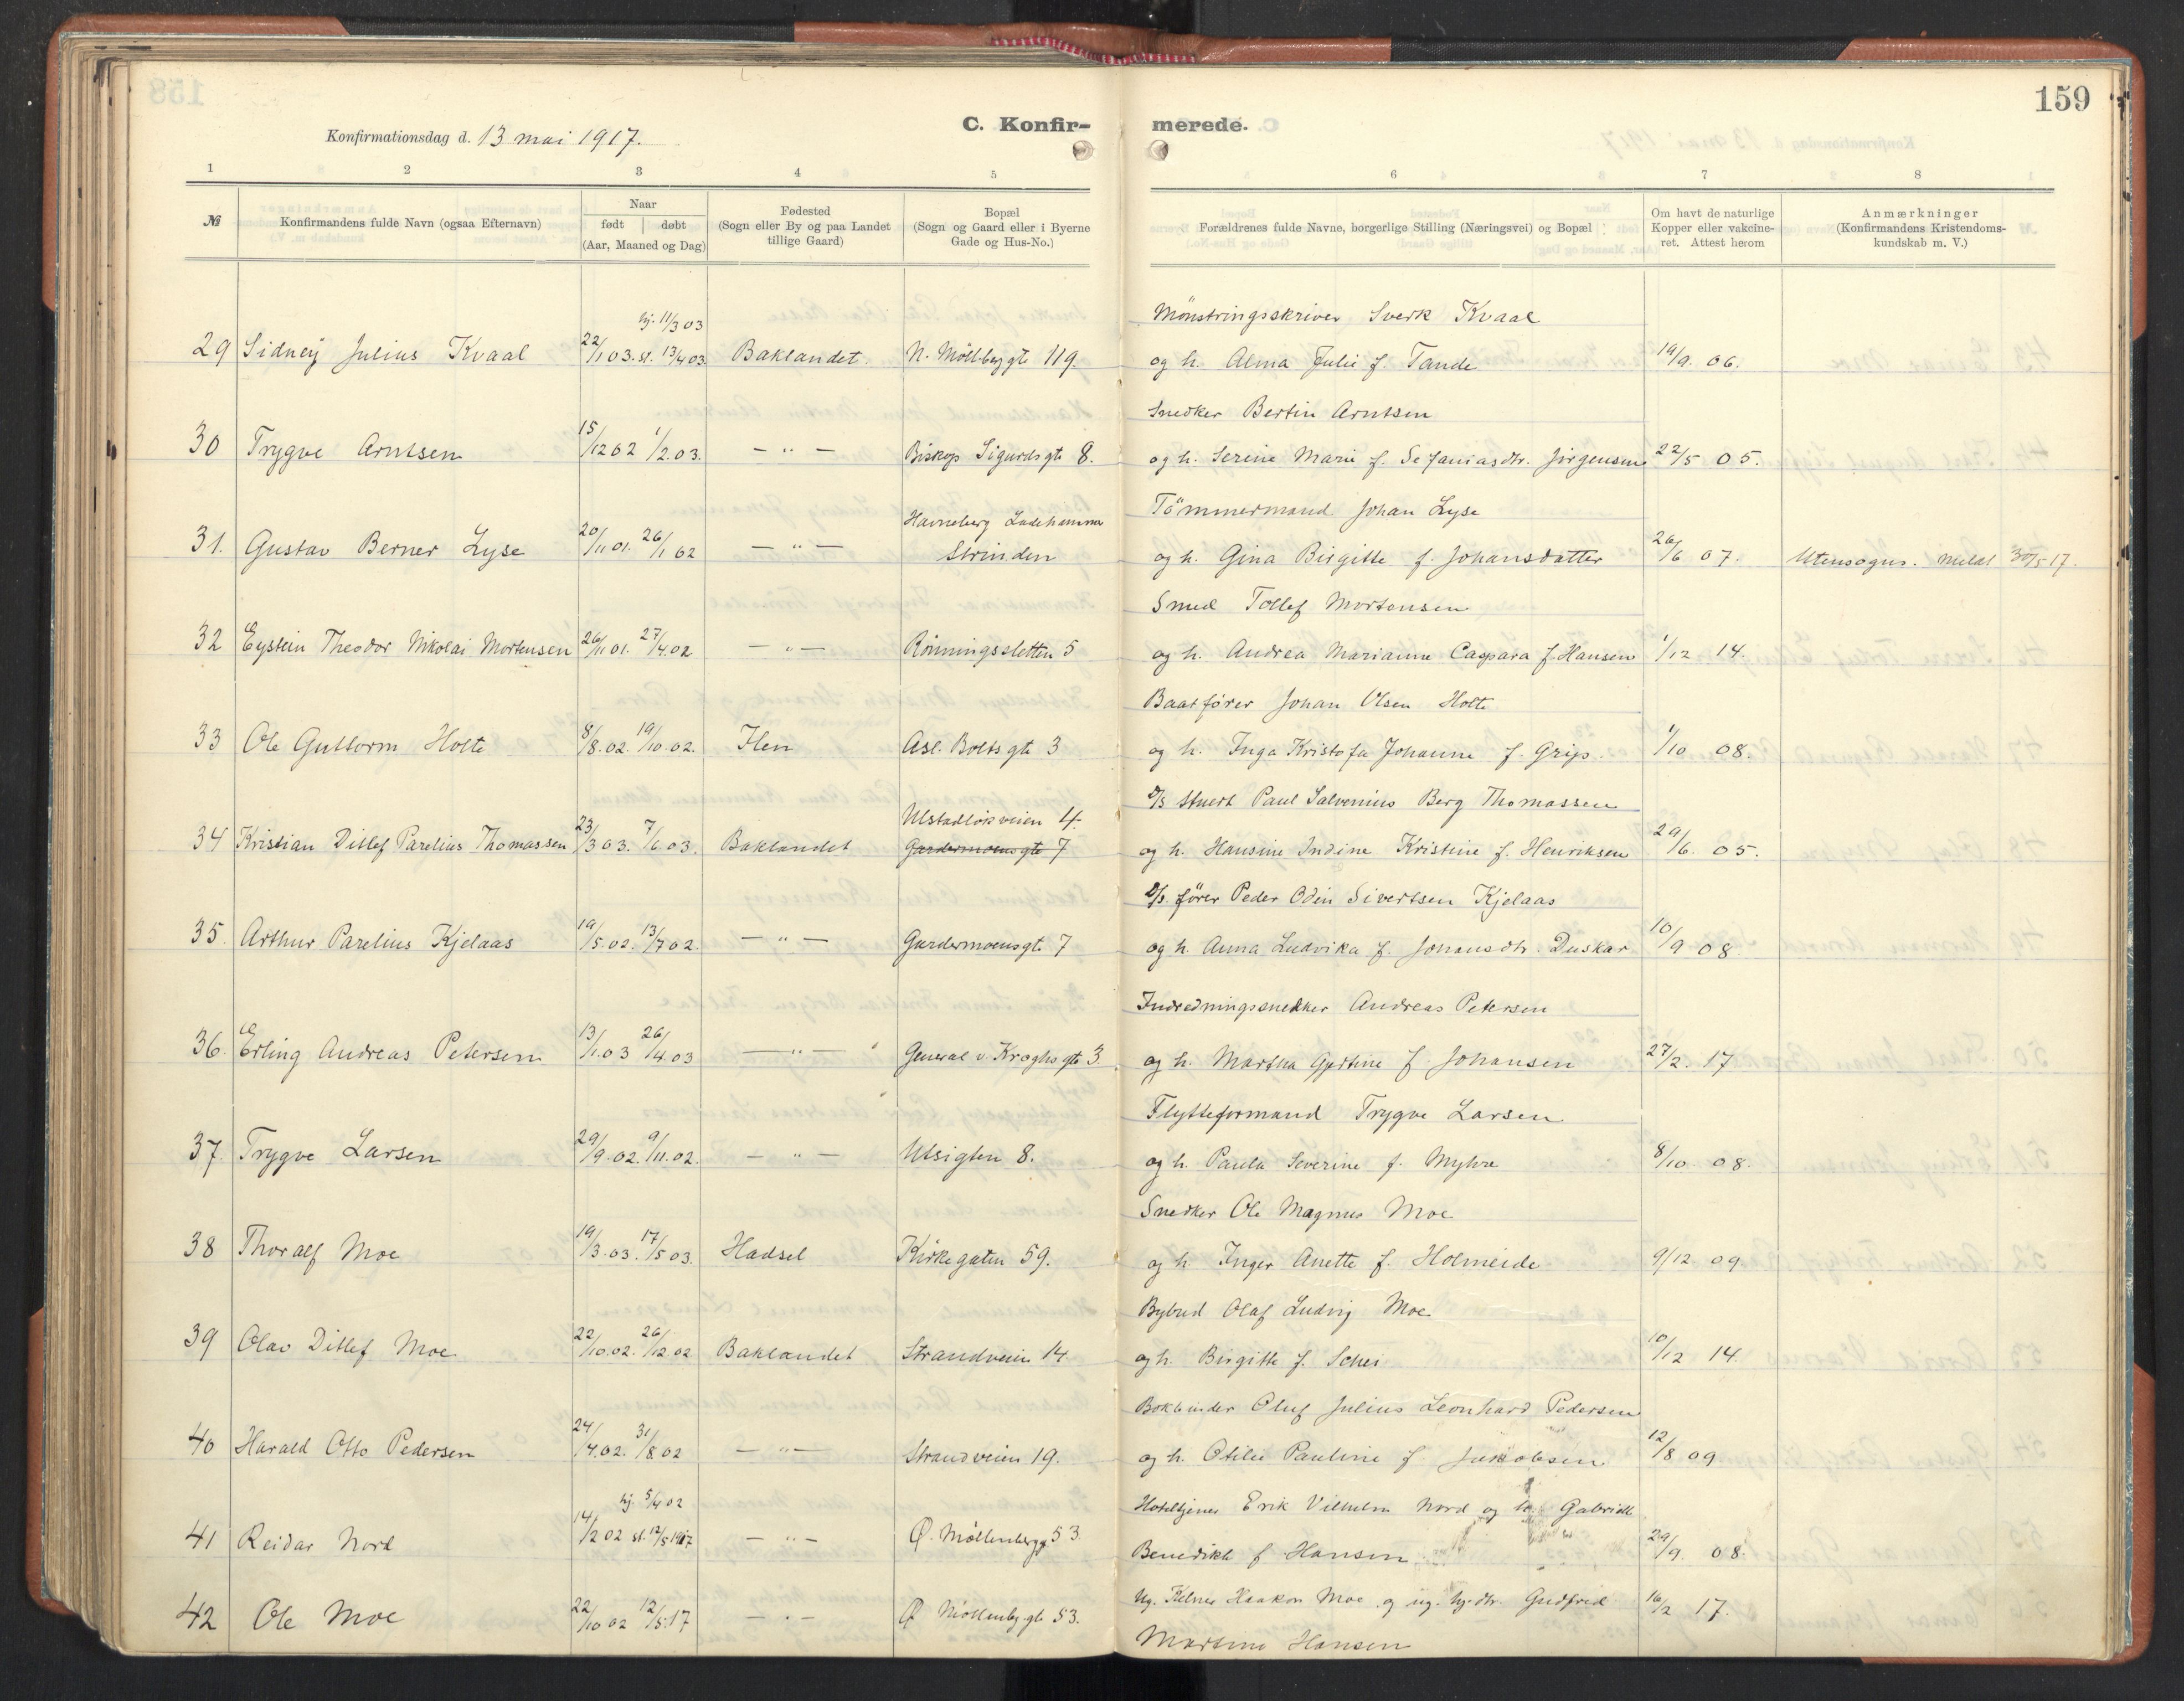 159
C. Konfir-
merede.
Konfirmationsdag d. 13 mai 1917.
1 2 3 4 5
6 7 8
№ Konfirmandens fulde Navn (ogsaa Efternavn) Naar født døbt (Aar, Maaned og Dag) Fødested (Sogn eller By og paa Landet tillige Gaard) Bopæl (Sogn og Gaard eller i Byerne Gade og Hus-No.)
Forældrenes fulde Navne, borgerlige Stilling (Næringsvei) og Bopæl Om havt de naturlige Kopper eller vakcineret. Attest herom Anmærkninger (Konfirmandens Kristendomskundskab m. V.)
hj. 11/3 03 Mönstringsskriver Sverk Kvaal
29 Sidney Julius Kvaal 22/1 03. st. 13/4 03 Baklandet. N. Möllbeggt 119. og h. Alma Julie f. Tande 19/9. 06.
Snedker Bertin Arntsen
30 Trygve Arntsen 15/12 02 1/2.03. — " — Biskop Sigurdsgt 8. og h. Serine Marie f. Sefaniasdtr. Jörgensen 22/5 05.
Havneberg Ladehammer Tömmermand Johan Lyse
31. Gustav Berner Lyse 20/11 01. 26/1 02 — " — Strinden og h. Gina Birgitte f. Johansdatter 26/6 07. Utensogns. Meldt 30/5 17.
Smed Tollef Mortensen
32 Eystein Theodor Nikolai Mortensen 26/11 01. 27/4.02 — " — Rönningsletten 5 og h. Andrea Marianne Caspara f. Hansen 1/12 14.
Baatfører Johan Olsen Holte
33 Ole Guttorm Holte 8/8.02. 19/10.02. Ilen Asl. Bolts gt 3 og h. Inga Kristofa Johanne f. Grip. 1/10 08.
Ulstadlökveien 4. D/S Stuert Paul Salvenius Berg Thomassen
34 Kristian Ditlef Parelius Thomassen 23/3 03. 7/6 03. Baklandet Gardermoensgt 7 og h. Hansine Indine Kristine f. Henriksen 29/6. 05.
D/S. fører Peder Odin Sivertsen Kjelaas
35. Arthur Parelius Kjelaas 19/5.02. 13/7 02. — " — Gardermoensgt. 7 og h. Anna Ludvika f. Johansdtr. Duskar 10/9 08.
Indredningssnedker Andreas Petersen
36. Erling Andreas Petersen 13/1.03 26/4.03 — " — General v. Kroghs gt 3. og h. Martha Gjertine f. Johansen 27/2. 17
Flytteformand Trygve Larsen
37. Trygve Larsen 29/9.02. 9/11.02. — " — Utsigten 8. og h. Paula Severine f. Myhre 8/10 08.
Snedker Ole Magnus Moe
38 Thoralf Moe 19/3.03. 17/5 03. Hadsel Kirkegaten 59. og h. Inger Anette f. Holmeide 9/12 09.
Bybud Olaf Ludvig Moe
39 Olav Ditlef Moe 22/10.02. 26/12 02 Baklandet Strandveien 14 og h. Birgitte f. Schei 10/12 14.
Bokbinder Oluf Julius Leonhard Pedersen
40 Harald Otto Pedersen 24/7.02. 31/8 02 — " — Strandveien 19. og h. Otilie Pauline f. Jakobsen 12/8 09
hj. 5/4 02 Hoteltjener Erik Vilhelm Nord og h. Gabriell
41 Reidar Nord 14/2 02 st. 12/5 1917 — " — Ø. Möllenbergg 53 Benedikte f. Hansen 29/9. 08.
Ug. Kelner Haakon Moe og ug. hj. dtr. Gudfrid
42 Ole Moe 22/10 02 12/5.17 — " — Ø Möllenb.gt 53. Martine Hansen 16/2 17.